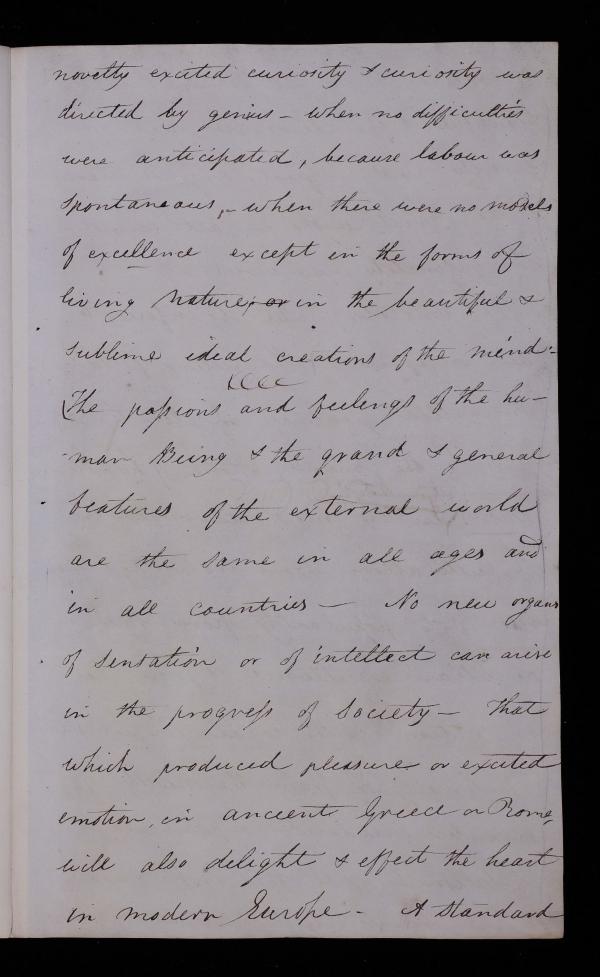 novelty excited curiosity & curiosity was
directed by genius – when no difficulties
were anticipated, because labour was
spontaneous, – when there were no models
of excellence except in the forms of
living nature, or in the beautiful &
sublime ideal creations of the mind. –
(The passions and feelings of the hu-
man Being & the grand & general
features of the external world
are the same in all ages and
in all countries – No new organs
of sensation or of intellect can arise
in the progress of Society – that
which produced pleasure or excited
emotion, in ancient Greece or Rome,
will also delight & effect the heart
in modern Europe – A standard